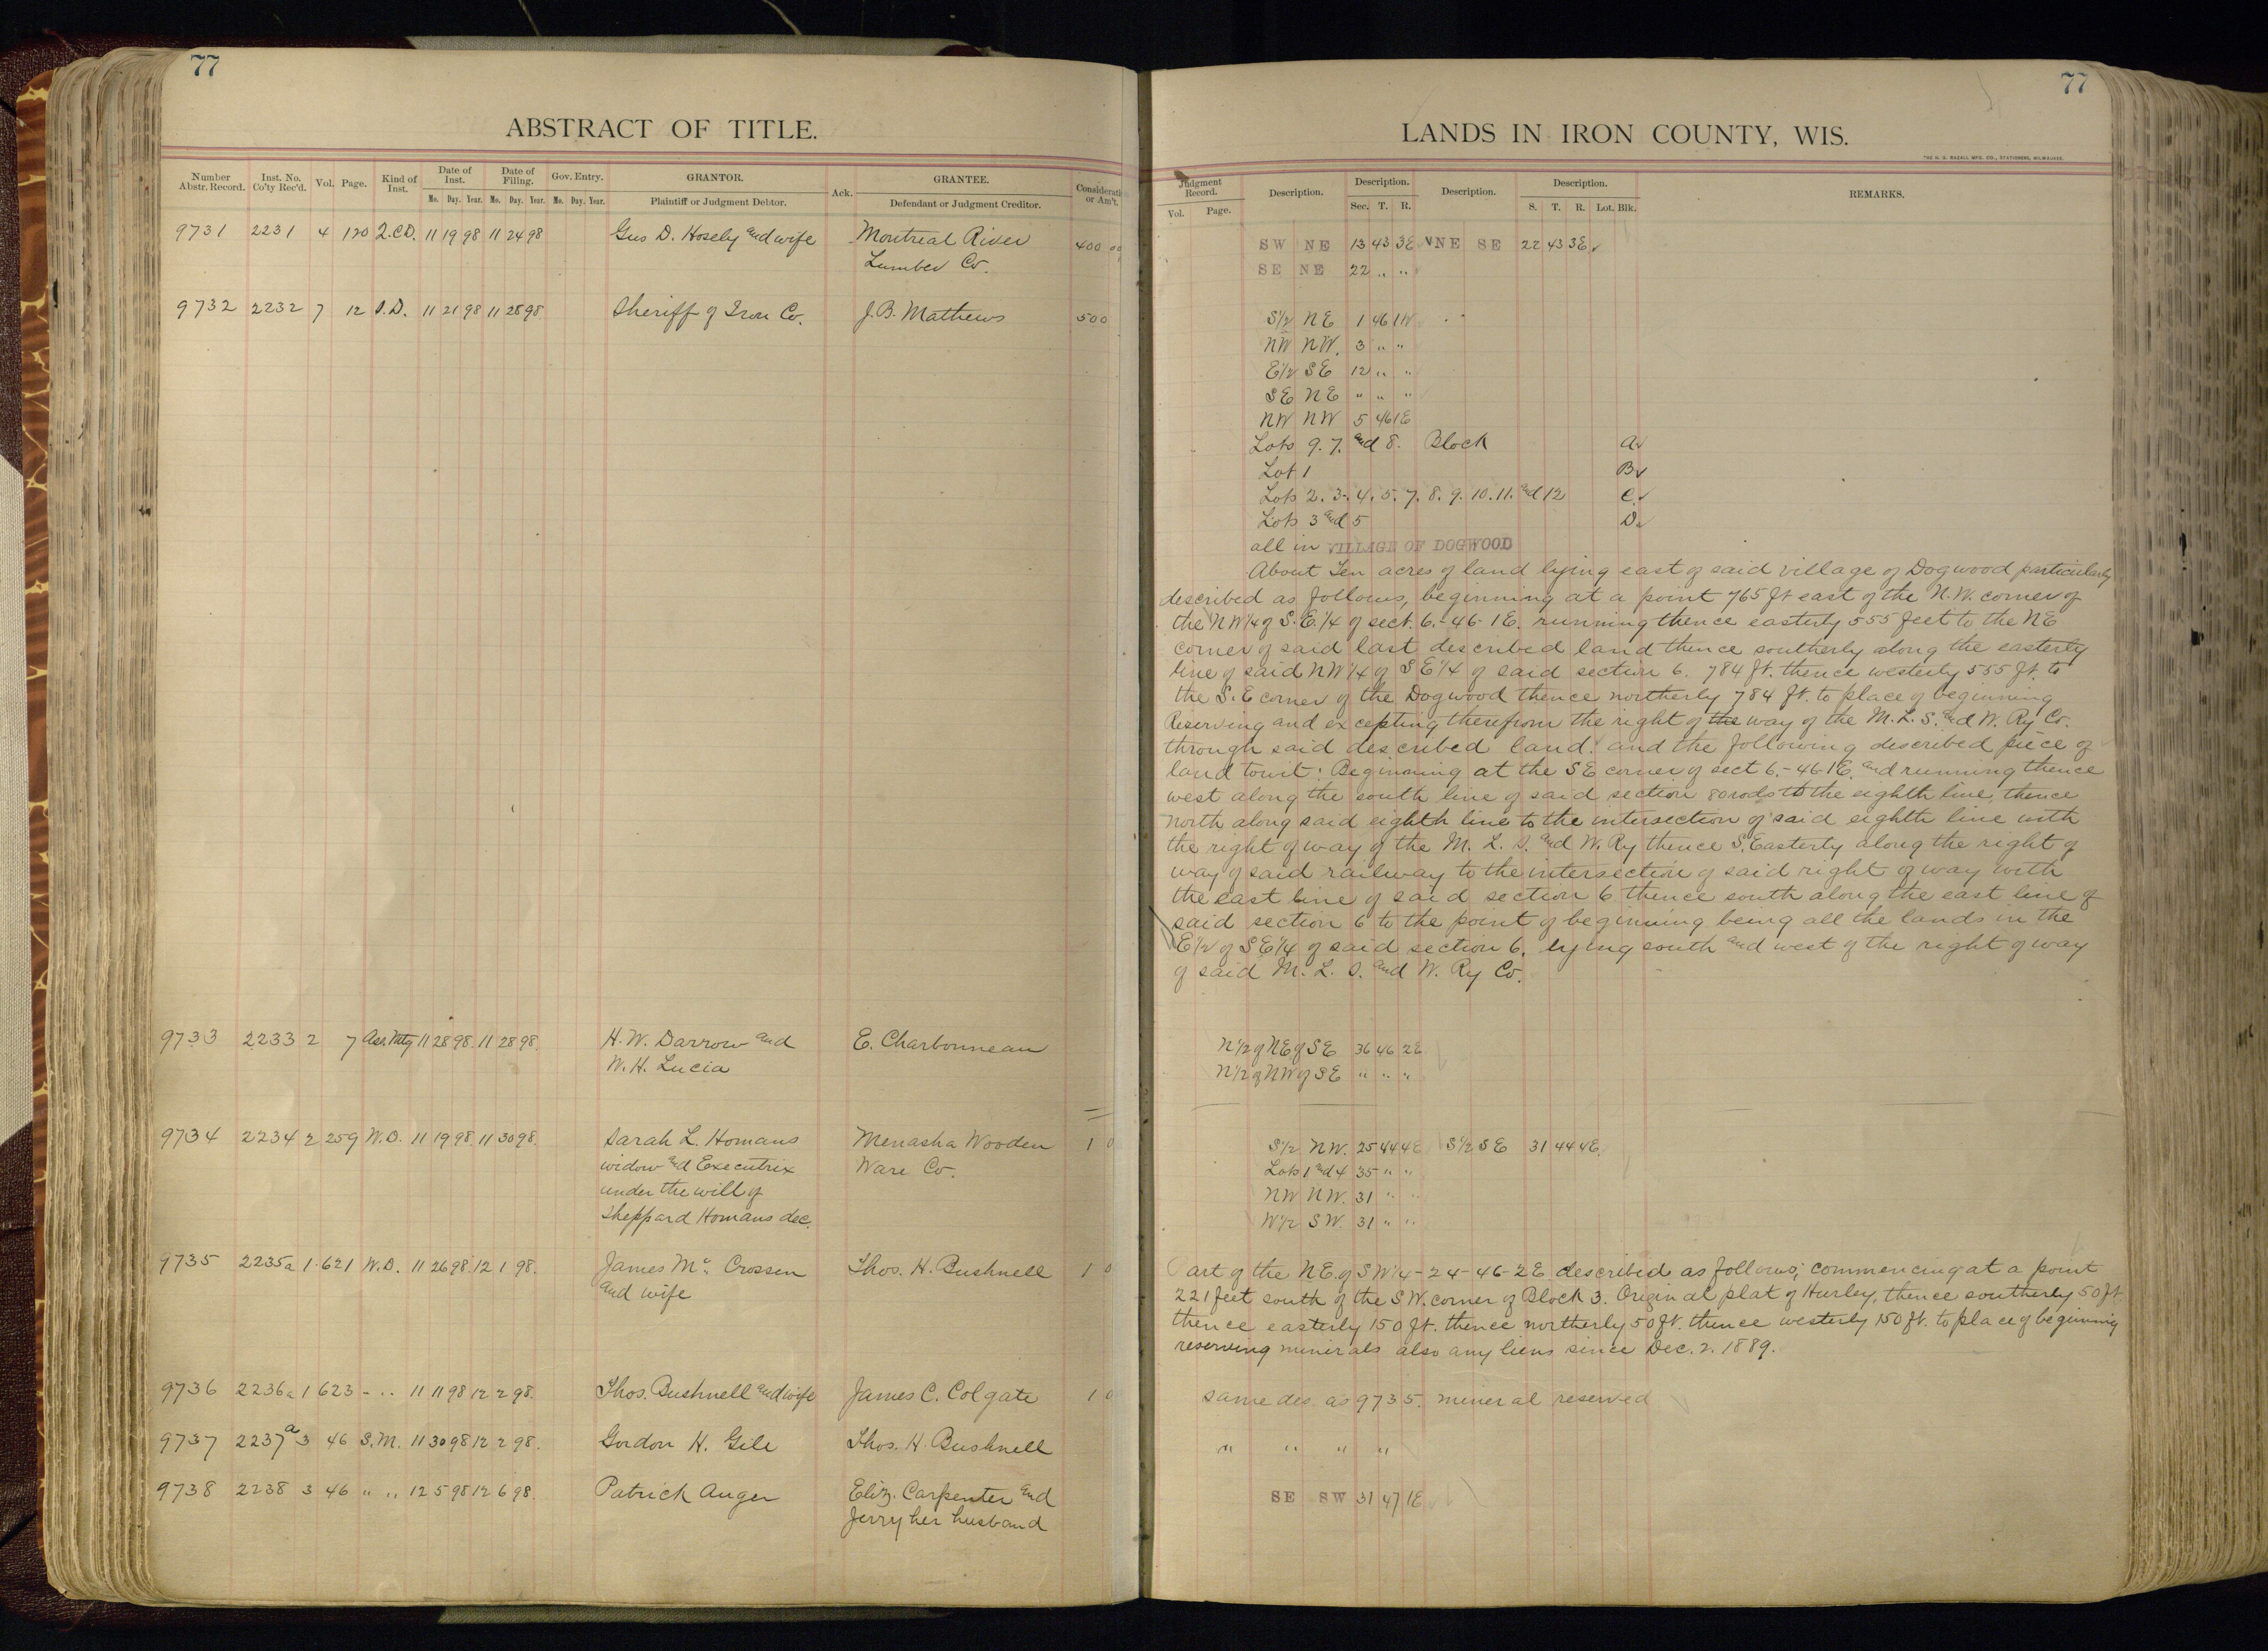 77
ABSTRACT OF TITLE.
Number Abstr. Record. Inst. No. Co'ty Rec'd. Vol. Page. Kind of Inst. Date of Inst. Date of Filing. Gov. Entry. GRANTOR. Ack. GRANTEE. Consideration or Am't.
Mo. Day. Year. Mo. Day. Year. Mo. Day. Year. Plaintiff or Judgment Debtor. Defendant or Judgment Creditor.
9731 2231 4 120 Q.C.D. 11 19 98 11 24 98 Gus D. Hosely and wife Montreal River 400 00
Lumber Co.
9732 2232 7 12 S.D. 11 21 98 11 28 98 Sheriff of Iron Co. J.B. Mathews 500
9733 2233 2 7 Ass. Mtg 11 28 98. 11 28 98. H.W. Darrow and E. Charbonneau
W.H. Lucia
9734 2234 2 259 W.D. 11 19 98. 11 30 98. Sarah L. Homans Menasha Wooden 1 0
widow and Executrix Ware Co.
under the will of
Sheppard Homans dec.
9735 2235a 1 621 W.D. 11 26 98. 12 1 98. James Mc Crossen Thos. H. Bushnell 1 0
and wife
9736 2236a 1 623 - .. 11 11 98 12 2 98. Thos. Bushnell and wife James C. Colgate 1 0
9737 2237a 3 46 S.M. 11 30 98 12 2 98. Gordon H. Gile Thos. H. Bushnell
9738 2238 3 46 " " 12 5 98 12 6 98. Patrick Auger Eliz. Carpenter and
Jerry her husband
77
LANDS IN IRON COUNTY, WIS.
THE H. G. RAZALL MFG. CO., STATIONERS, MILWAUKEE.
Judgment Record. Description. Description. Description. Description. REMARKS.
Vol. Page. Sec. T. R. S. T. R. Lot. Blk.
SW NE 13 43 3E NE SE 22 43 3E
SE NE 22 " "
S1/2 NE 1 46 1W
NW NW. 3 " "
E1/2 SE 12 " "
SE NE " " "
NW NW 5 46 1E
Lots 9. 7. and 8. Block A
Lot 1 B
Lots 2. 3. 4. 5. 7. 8. 9. 10. 11. and 12 C
Lots 3 and 5 D
all in VILLAGE OF DOGWOOD
About Ten acres of land lying east of said village of Dogwood particularly
described as follows, beginning at a point 765 ft east of the N.W. corner of
the NW 1/4 of S.E. 1/4 of sect. 6.-46-1E. running thence easterly 555 feet to the NE
corner of said last described land thence southerly along the easterly
line of said NW 1/4 of SE 1/4 of said section 6. 784 ft. thence westerly 555 ft. to
the S.E corner of the Dogwood thence northerly 784 ft. to place of beginning
Reserving and excepting therefrom the right of the way of the M. L. S. and W. Ry Co.
through said described land. and the following described piece of
land towit: Beginning at the SE corner of sect 6.-46-1E. and running thence
west along the south line of said section 80 rods to the eighth line, thence
north along said eighth line to the intersection of said eighth line with
the right of way of the M. L. S. and W. Ry thence S.Easterly along the right of
way of said railway to the intersection of said right of way with
the east line of said section 6 thence south along the east line of
said section 6 to the point of beginning being all the lands in the
E1/2 of SE1/4 of said section 6. lying south and west of the right of way
of said M. L. S. and W. Ry Co.
N1/2 of NE of SE 36 46 2E
N1/2 of NW of SE " " "
S1/2 NW. 25 44 4E S1/2 SE 31 44 4E.
Lots 1 and 4 35 " "
NW NW. 31 " "
W1/2 SW. 31 " "
Part of the NE. of SW1/4-24-46-2E described as follows; commencing at a point
221 feet south of the SW. corner of Block 3. Original plat of Hurley, thence southerly 50 ft.
thence easterly 150 ft. thence northerly 50 ft. thence westerly 150 ft. to place of beginning
reserving minerals also any liens since Dec. 2. 1889.
same des. as 9735. mineral reserved
" " " "
SE SW 31 47 1E